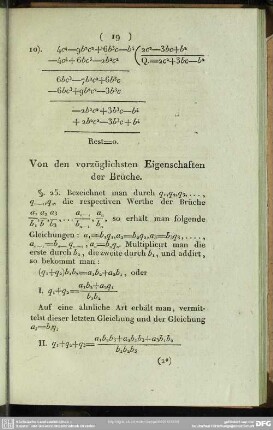 ( 19 )
10). 4c⁴—9b²c²+6b³c—b⁴ ( 2c²—3bc+b²
—4c⁴+6bc³—2b²c² Q.=2c²+3bc—b²
6bc³—7b²c²+6b³c
—6bc³+9b²c²—3b³c
—2b²c²+3b³c—b⁴
+ 2b²c²—3b³c+b⁴
Rest=0.
Von den vorzüglichsten Eigenschaften
der Brüche.
§. 25. Bezeichnet man durch q₁,q₂,q₃,....,
die respectiven Werthe der Brüche
so erhält man folgende
Gleichungen: a₁=b₁q₁,a₂=b₂q₂,a₃=b₃q₃,....,
Multiplicirt man die
erste durch b₂, die zweite durch b₁, und addirt,
so bekommt man:
(q₁+q₂)b₁b₂=a₁b₂+a₂b₁, oder
I. q₁+q₂=(a₁b₂+a₂b₁)/(b₁b₂)
Auf eine ähnliche Art erhält man, vermit-
telst dieser letzten Gleichung und der Gleichung
a₃=b₃q₃
II. q₁+q₂+q₃=(a₁b₂b₃+a₂b₁b₃+a₃b₁b₂)/(b₁b₂b₃)
(2*)